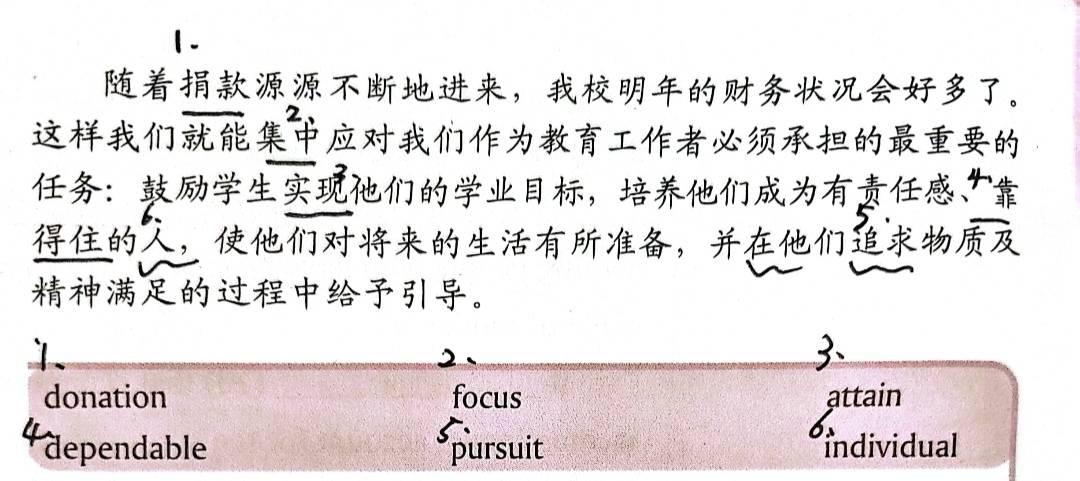 1.
随着捐款源源不断地进来，我校明年的财务状况会好多了。
2、
这样我们就能集中应对我们作为教育工作者必须承担的最重要的
3 4、
任务：鼓励学生实现他们的学业目标，培养他们成为有责任感、靠
6、 5.
得住的人，使他们对将来的生活有所准备，并在他们追求物质及
精神满足的过程中给予引导。
1、 2、 3、
donation focus attain
4、dependable 5.pursuit 6.individual